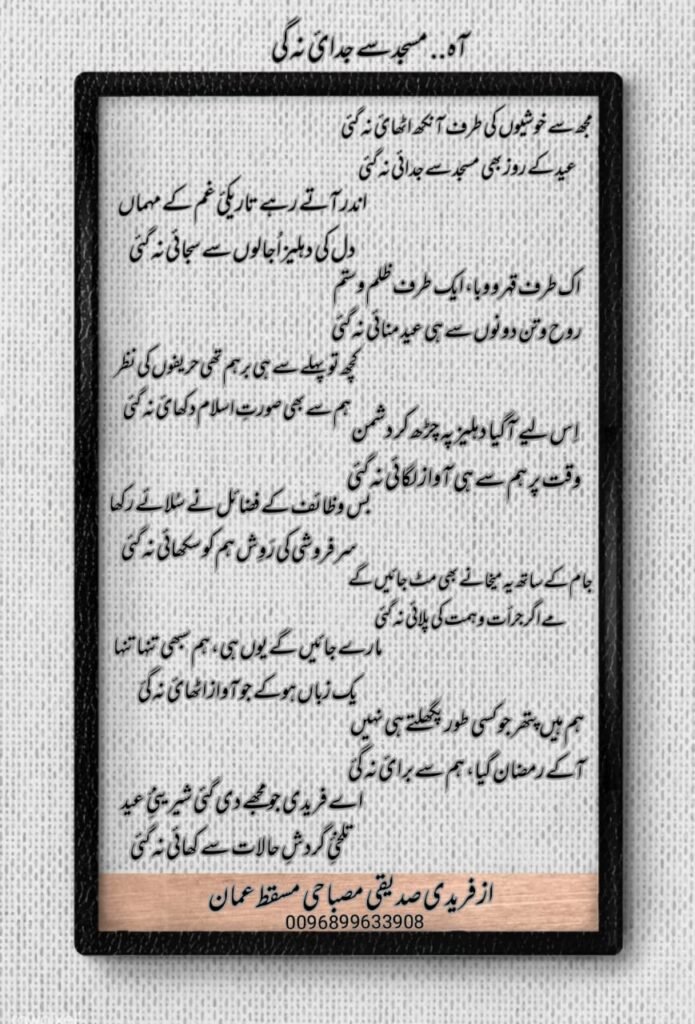 آہ.. مسجد سے جدائ نہ گی
مجھ سے خوشیوں کی طرف آنکھ اٹھائ نہ گئ
عید کے روز بھی مسجد سے جدائی نہ گئ
اندر آتے رہے تاریکئ غم کے مہماں
دل کی دہلیز اُجالوں سے سجائی نہ گئ
اک طرف قہر و وبا، ایک طرف ظلم و ستم
روح و تن دونوں سے ہی عید منائی نہ گئ
کچھ تو پہلے سے ہی برہم تھی حریفوں کی نظر
ہم سے بھی صورتِ اسلام دکھائ نہ گئ
اِس لیے آگیا دہلیز پہ چڑھ کر دشمن
وقت پر ہم سے ہی آواز لگائی نہ گئ
بس وظائف کے فضائل نے سُلائے رکھا
سرفروشی کی رَوِش ہم کو سکھائی نہ گئ
جام کے ساتھ یہ میخانے بھی مٹ جائیں گے
مے اگر جرأت و ہمت کی پلائی نہ گئ
مارے جائیں گے یوں ہی، ہم سبھی تنہا تنہا
یک زباں ہوکے جو آواز اٹھائ نہ گئ
ہم ہیں پتھر جو کسی طور پگھلتے ہی نہیں
آکے رمضان گیا، ہم سے برائ نہ گئ
اے فریدی جو مجھے دی گئی شیرینئِ عید
تلخئِ گردشِ حالات سے کھائی نہ گئ
از فریدی صدیقی مصباحی مسقط عمان
0096899633908